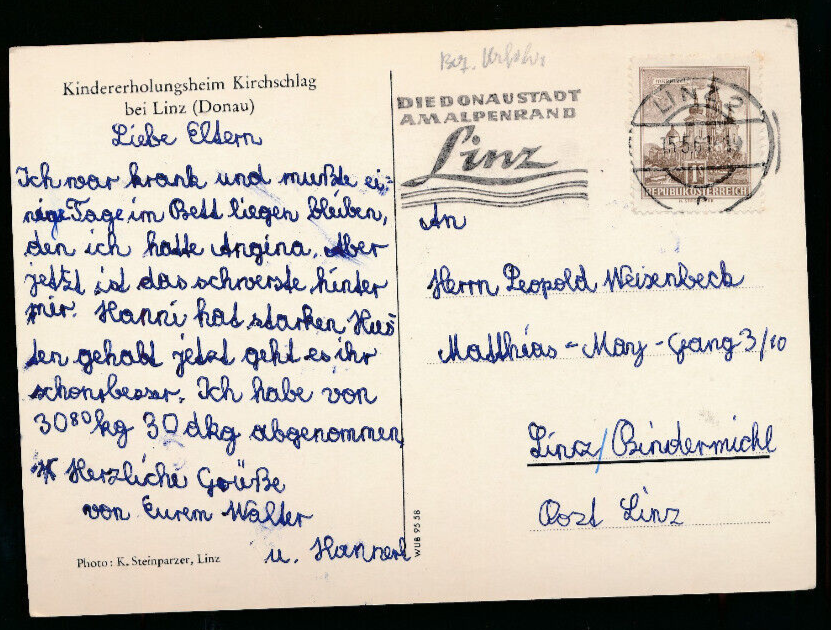 Kindererholungsheim Kirchschlag
bei Linz (Donau)
Liebe Eltern
Ich war krank und mußte ei-
nige Tage im Bett liegen bleiben,
den ich hatte Angina. Aber
jetzt ist das schwerste hinter
mir. Hanni hat starken Hus
ten gehabt jetzt geht es ihr
schon besser. Ich habe von
30⁸⁰ kg 30 dkg abgenommen
Herzliche Grüße
von Eurem Walter
u. Hannerl
Photo: K. Steinparzer, Linz
WUB 95 58
Bez. Urfahr
DIE DONAUSTADT
AM ALPENRAND
Linz
LINZ 2
REPUBLIK ÖSTERREICH
An
Herrn Leopold Weisenbeck
Matthias-May-Gang 3/10
Linz/Bindermichl
Post Linz